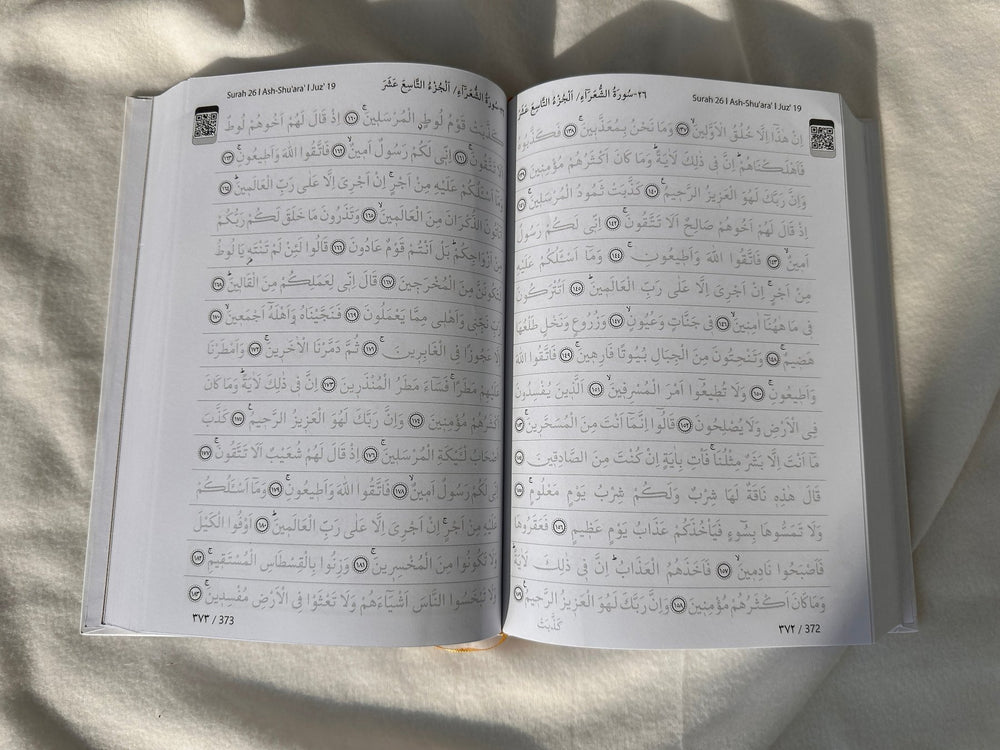 ٢٦-سُورَةُ الشُّعَرَاءِ/ اَلْجُزْءُ التَّاسِعَ عَشَرَ
Surah 26 I Ash-Shu'ara' I Juz' 19
اِنْ هٰذَٓا اِلَّا خُلُقُ الْاَوَّلٖينَۙ ﴿١٣٧﴾ وَمَا نَحْنُ بِمُعَذَّبٖينَۚ ﴿١٣٨﴾ فَكَذَّبُوهُ
فَاَهْلَكْنَاهُمْۜ اِنَّ فٖي ذٰلِكَ لَاٰيَةًۜ وَمَا كَانَ اَكْثَرُهُمْ مُؤْمِنٖينَ ﴿١٣٩﴾
وَاِنَّ رَبَّكَ لَهُوَ الْعَزٖيزُ الرَّحٖيمُۚ ﴿١٤٠﴾ كَذَّبَتْ ثَمُودُ الْمُرْسَلٖينَۚ ﴿١٤١﴾
اِذْ قَالَ لَهُمْ اَخُوهُمْ صَالِحٌ اَلَا تَتَّقُونَۚ ﴿١٤٢﴾ اِنّٖي لَكُمْ رَسُولٌ
اَمٖينٌۙ ﴿١٤٣﴾ فَاتَّقُوا اللّٰهَ وَاَطٖيعُونِۚ ﴿١٤٤﴾ وَمَٓا اَسْـَٔلُكُمْ عَلَيْهِ
مِنْ اَجْرٍۚ اِنْ اَجْرِيَ اِلَّا عَلٰى رَبِّ الْعَالَمٖينَۜ ﴿١٤٥﴾ اَتُتْرَكُونَ
فٖي مَا هٰهُنَٓا اٰمِنٖينَۙ ﴿١٤٦﴾ فٖي جَنَّاتٍ وَعُيُونٍۙ ﴿١٤٧﴾ وَزُرُوعٍ وَنَخْلٍ طَلْعُهَا
هَضٖيمٌۚ ﴿١٤٨﴾ وَتَنْحِتُونَ مِنَ الْجِبَالِ بُيُوتًا فَارِهٖينَۚ ﴿١٤٩﴾ فَاتَّقُوا اللّٰهَ
وَاَطٖيعُونِۚ ﴿١٥٠﴾ وَلَا تُطٖيعُٓوا اَمْرَ الْمُسْرِفٖينَۙ ﴿١٥١﴾ اَلَّذٖينَ يُفْسِدُونَ
فِي الْاَرْضِ وَلَا يُصْلِحُونَ ﴿١٥٢﴾ قَالُٓوا اِنَّمَٓا اَنْتَ مِنَ الْمُسَحَّرٖينَۚ ﴿١٥٣﴾
مَٓا اَنْتَ اِلَّا بَشَرٌ مِثْلُنَاۚ فَأْتِ بِاٰيَةٍ اِنْ كُنْتَ مِنَ الصَّادِقٖينَ ﴿١٥٤﴾
قَالَ هٰذِهٖ نَاقَةٌ لَهَا شِرْبٌ وَلَكُمْ شِرْبُ يَوْمٍ مَعْلُومٍۚ ﴿١٥٥﴾
وَلَا تَمَسُّوهَا بِسُٓوءٍ فَيَأْخُذَكُمْ عَذَابُ يَوْمٍ عَظٖيمٍ ﴿١٥٦﴾ فَعَقَرُوهَا
فَاَصْبَحُوا نَادِمٖينَۙ ﴿١٥٧﴾ فَاَخَذَهُمُ الْعَذَابُۜ اِنَّ فٖي ذٰلِكَ لَاٰيَةًۜ
وَمَا كَانَ اَكْثَرُهُمْ مُؤْمِنٖينَ ﴿١٥٨﴾ وَاِنَّ رَبَّكَ لَهُوَ الْعَزٖيزُ الرَّحٖيمُۚ ﴿١٥٩﴾
كَذَّبَتْ
٣٧٢ / 372
سُورَةُ الشُّعَرَاءِ/ اَلْجُزْءُ التَّاسِعَ عَشَرَ
Surah 26 I Ash-Shu'ara' I Juz' 19
كَذَّبَتْ قَوْمُ لُوطٍۨ الْمُرْسَلٖينَۚ ﴿١٦٠﴾ اِذْ قَالَ لَهُمْ اَخُوهُمْ لُوطٌ
اَلَا تَتَّقُونَۚ ﴿١٦١﴾ اِنّٖي لَكُمْ رَسُولٌ اَمٖينٌۙ ﴿١٦٢﴾ فَاتَّقُوا اللّٰهَ وَاَطٖيعُونِۚ ﴿١٦٣﴾
وَمَٓا اَسْـَٔلُكُمْ عَلَيْهِ مِنْ اَجْرٍۚ اِنْ اَجْرِيَ اِلَّا عَلٰى رَبِّ الْعَالَمٖينَۜ ﴿١٦٤﴾
اَتَأْتُونَ الذُّكْرَانَ مِنَ الْعَالَمٖينَۙ ﴿١٦٥﴾ وَتَذَرُونَ مَا خَلَقَ لَكُمْ رَبُّكُمْ
مِنْ اَزْوَاجِكُمْۜ بَلْ اَنْتُمْ قَوْمٌ عَادُونَ ﴿١٦٦﴾ قَالُوا لَئِنْ لَمْ تَنْتَهِ يَا لُوطُ
لَتَكُونَنَّ مِنَ الْمُخْرَجٖينَ ﴿١٦٧﴾ قَالَ اِنّٖي لِعَمَلِكُمْ مِنَ الْقَالٖينَۜ ﴿١٦٨﴾
رَبِّ نَجِّنٖي وَاَهْلٖي مِمَّا يَعْمَلُونَ ﴿١٦٩﴾ فَنَجَّيْنَاهُ وَاَهْلَهُٓ اَجْمَعٖينَۙ ﴿١٧٠﴾
اِلَّا عَجُوزًا فِي الْغَابِرٖينَۚ ﴿١٧١﴾ ثُمَّ دَمَّرْنَا الْاٰخَرٖينَۚ ﴿١٧٢﴾ وَاَمْطَرْنَا
عَلَيْهِمْ مَطَرًاۚ فَسَٓاءَ مَطَرُ الْمُنْذَرٖينَ ﴿١٧٣﴾ اِنَّ فٖي ذٰلِكَ لَاٰيَةًۜ وَمَا كَانَ
اَكْثَرُهُمْ مُؤْمِنٖينَ ﴿١٧٤﴾ وَاِنَّ رَبَّكَ لَهُوَ الْعَزٖيزُ الرَّحٖيمُۚ ﴿١٧٥﴾ كَذَّبَ
اَصْحَابُ لْـَٔيْكَةِ الْمُرْسَلٖينَۚ ﴿١٧٦﴾ اِذْ قَالَ لَهُمْ شُعَيْبٌ اَلَا تَتَّقُونَۚ ﴿١٧٧﴾
اِنّٖي لَكُمْ رَسُولٌ اَمٖينٌۙ ﴿١٧٨﴾ فَاتَّقُوا اللّٰهَ وَاَطٖيعُونِۚ ﴿١٧٩﴾ وَمَٓا اَسْـَٔلُكُمْ
عَلَيْهِ مِنْ اَجْرٍۚ اِنْ اَجْرِيَ اِلَّا عَلٰى رَبِّ الْعَالَمٖينَۜ ﴿١٨٠﴾ اَوْفُوا الْكَيْلَ
وَلَا تَكُونُوا مِنَ الْمُخْسِرٖينَۚ ﴿١٨١﴾ وَزِنُوا بِالْقِسْطَاسِ الْمُسْتَقٖيمِۚ ﴿١٨٢﴾
وَلَا تَبْخَسُوا النَّاسَ اَشْيَٓاءَهُمْ وَلَا تَعْثَوْا فِي الْاَرْضِ مُفْسِدٖينَۚ ﴿١٨٣﴾
٣٧٣ / 373